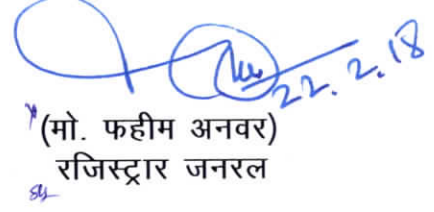 22.2.18
(मो. फहीम अनवर)
रजिस्ट्रार जनरल